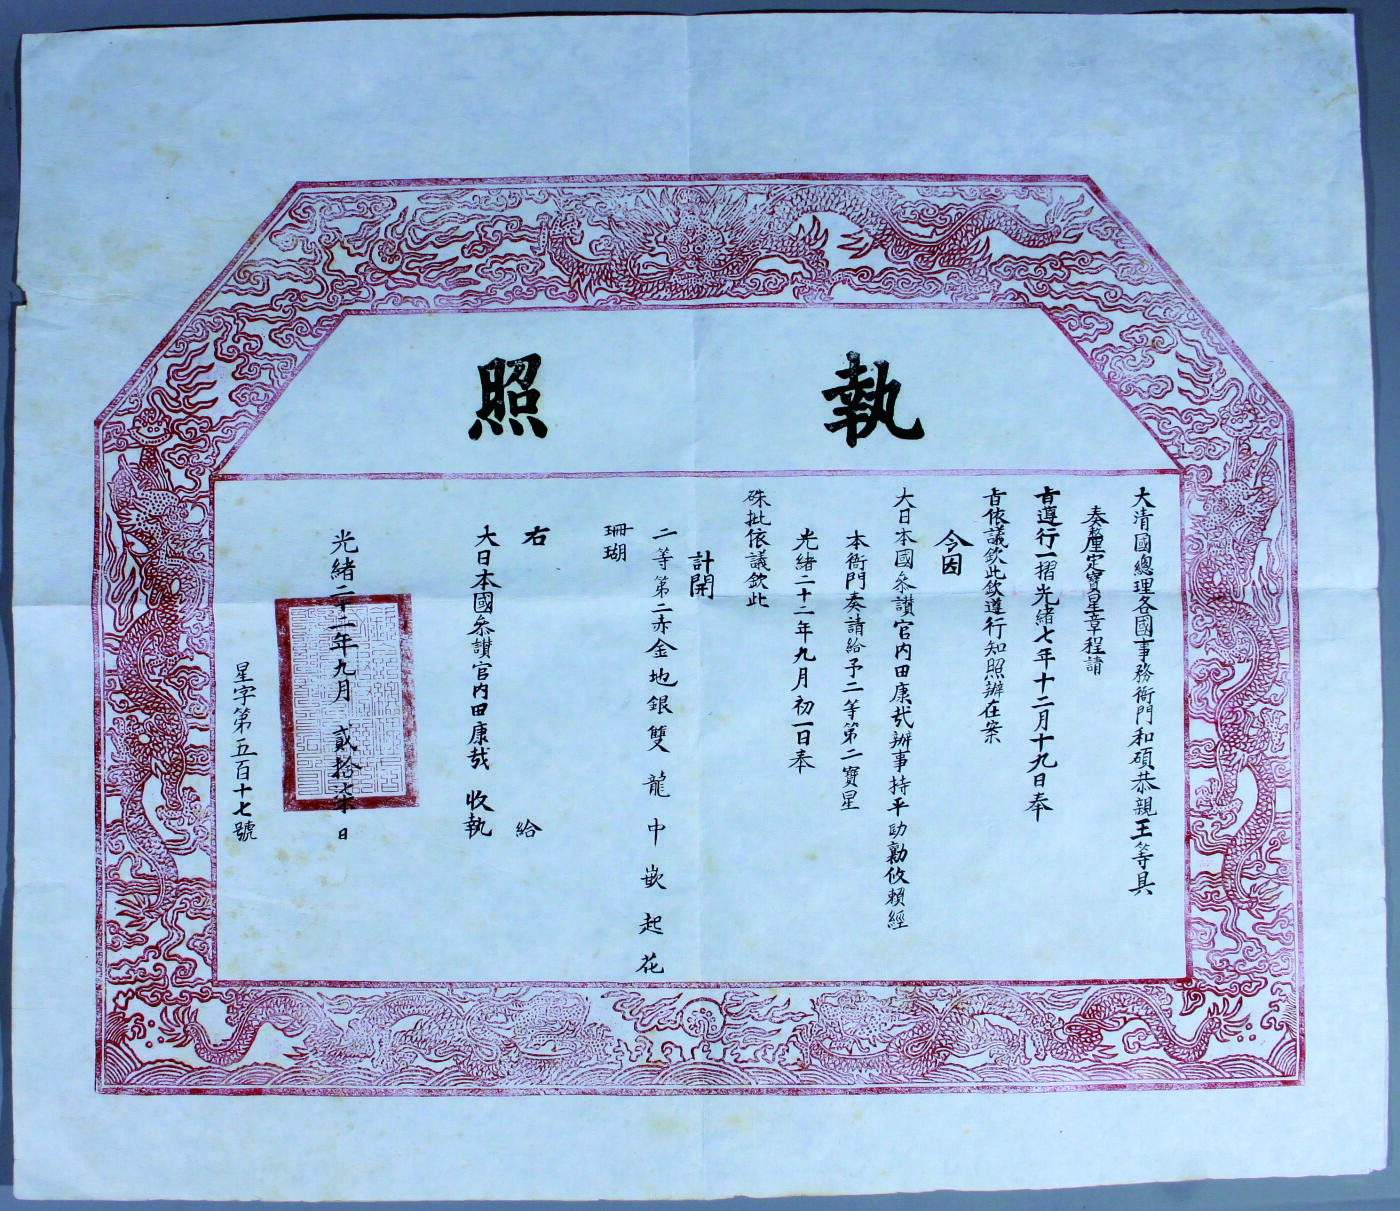 執照
大清國總理各國事務衙門和碩恭親王等具
奏釐定寶星章程請
旨遵行一摺光緒七年十二月十九日奉
旨依議欽此欽遵行知照辦在案
今因
大日本國叅讚官內田康哉辦事持平助勷攸賴經
本衙門奏請給予二等第二寶星
光緒二十二年九月初一日奉
硃批依議欽此
計開
二等第二赤金地銀雙龍中嵌起花
珊瑚
右給
大日本國叅讚官內田康哉收執
光緒二十二年九月貳拾柒日
星字第五百十七號